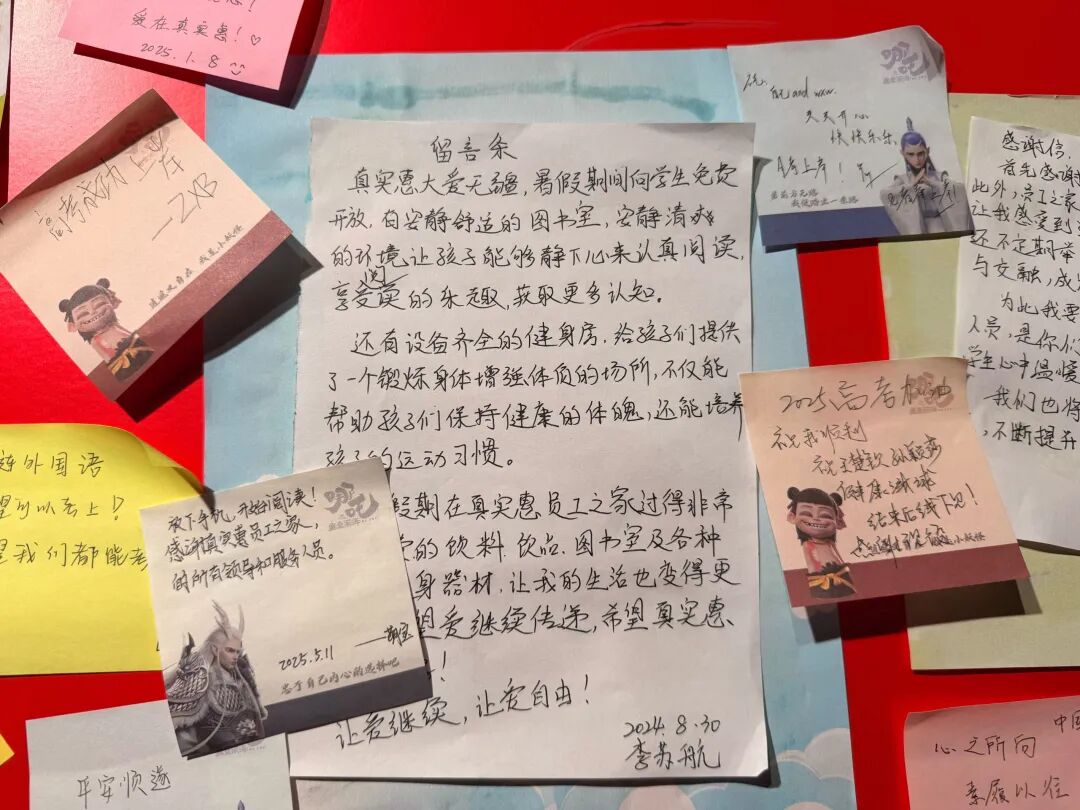 爱在真实惠！♡
2025.1.8
高考成功上岸
—ZXB
我是小妖怪
外国语
可以去上！
我们都能考
放下手机，开始阅读！
感谢真实惠员工之家
的所有领导和服务人员。
2025.5.11
忠于自己内心的选择吧
平安顺遂
留言条
真实惠大爱无疆，暑假期间向学生免费
开放，有安静舒适的图书室，安静清爽
的环境让孩子能够静下心来认真阅读，
享受阅读的乐趣，获取更多认知。
还有设备齐全的健身房，给孩子们提供
了一个锻炼身体增强体质的场所，不仅能
帮助孩子们保持健康的体魄，还能培养
孩子的运动习惯。
假期在真实惠员工之家过得非常
的饮料、饮品、图书室及各种
身器材，让我的生活也变得更
望爱继续传递，希望真实惠
！
让爱继续，让爱自由！
2024.8.30
李苏航
祝
and wxw.
天天开心
快快乐乐
上岸！
若前方无路
我便踏出一条路
2025高考加油
祝我顺利
祝王楚钦孙颖莎
健康
结束后线下见！
小妖怪
感谢信
首先感谢
此外，员工之家
让我感受到
还不定期举
与交融，成
为此我要
人员，是你们
学生心中温暖
我们也将
，不断提升
中国
心之所向
素履以往